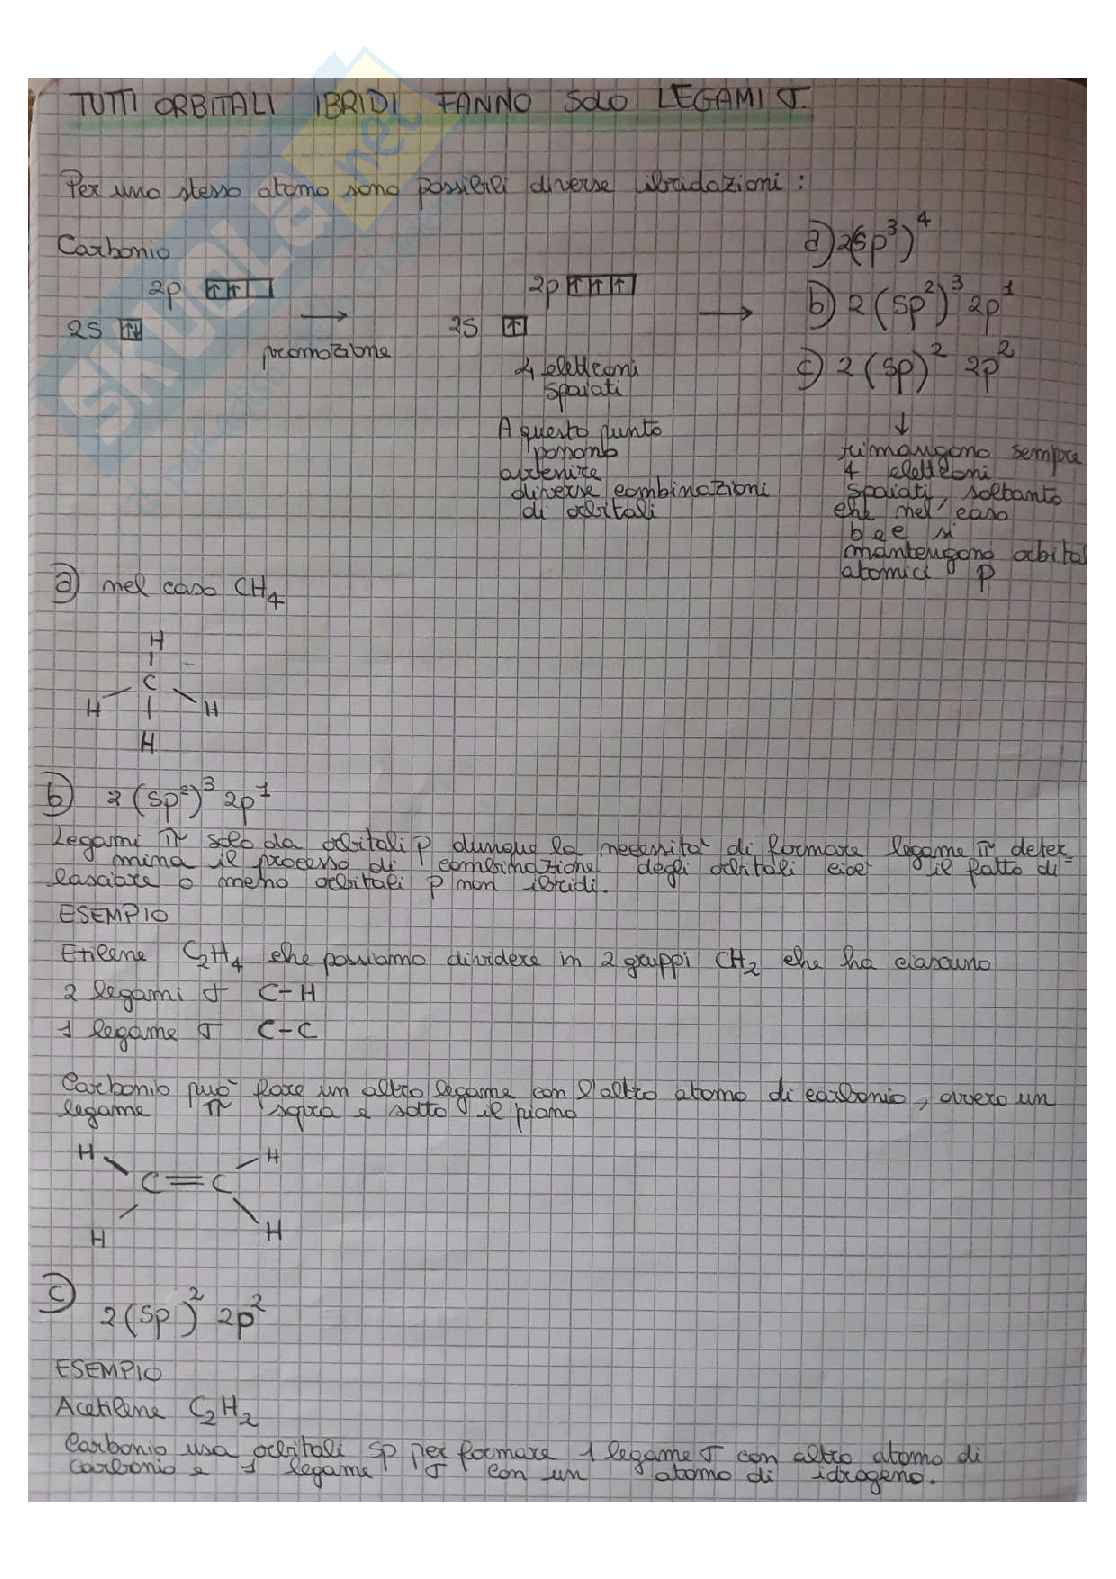 TUTTI ORBITALI IBRIDI FANNO SOLO LEGAMI σ.
Per uno stesso atomo sono possibili diverse ibridazioni:
Carbonio
2p ↑ ↑
2s ↑↓
→
promozione
2p ↑ ↑ ↑
2s ↑
4 elettroni
spaiati
A questo punto
possono
avvenire
diverse combinazioni
di orbitali
→
a) 2(sp³)⁴
b) 2(sp²)³ 2p¹
c) 2(sp)² 2p²
↓
rimangono sempre
4 elettroni
spaiati, soltanto
che nel caso
b e c si
mantengono orbital
atomici p
a) nel caso CH₄
H
C
H H
H
b) 2(sp²)³ 2p¹
Legami π solo da orbitali p dunque la necessità di formare legame π deter=
mina il processo di combinazione degli orbitali cioè il fatto di
lasciare o meno orbitali p non ibridi.
ESEMPIO
Etilene C₂H₄ che possiamo dividere in 2 gruppi CH₂ che ha ciascuno
2 legami σ C-H
1 legame σ C-C
Carbonio può fare un altro legame con l'altro atomo di carbonio, ovvero un
legame π sopra e sotto il piano
H H
C=C
H H
c) 2(sp)² 2p²
ESEMPIO
Acetilene C₂H₂
Carbonio usa orbitali sp per formare 1 legame σ con altro atomo di
carbonio e 1 legame σ con un atomo di idrogeno.
SKUOLA.net